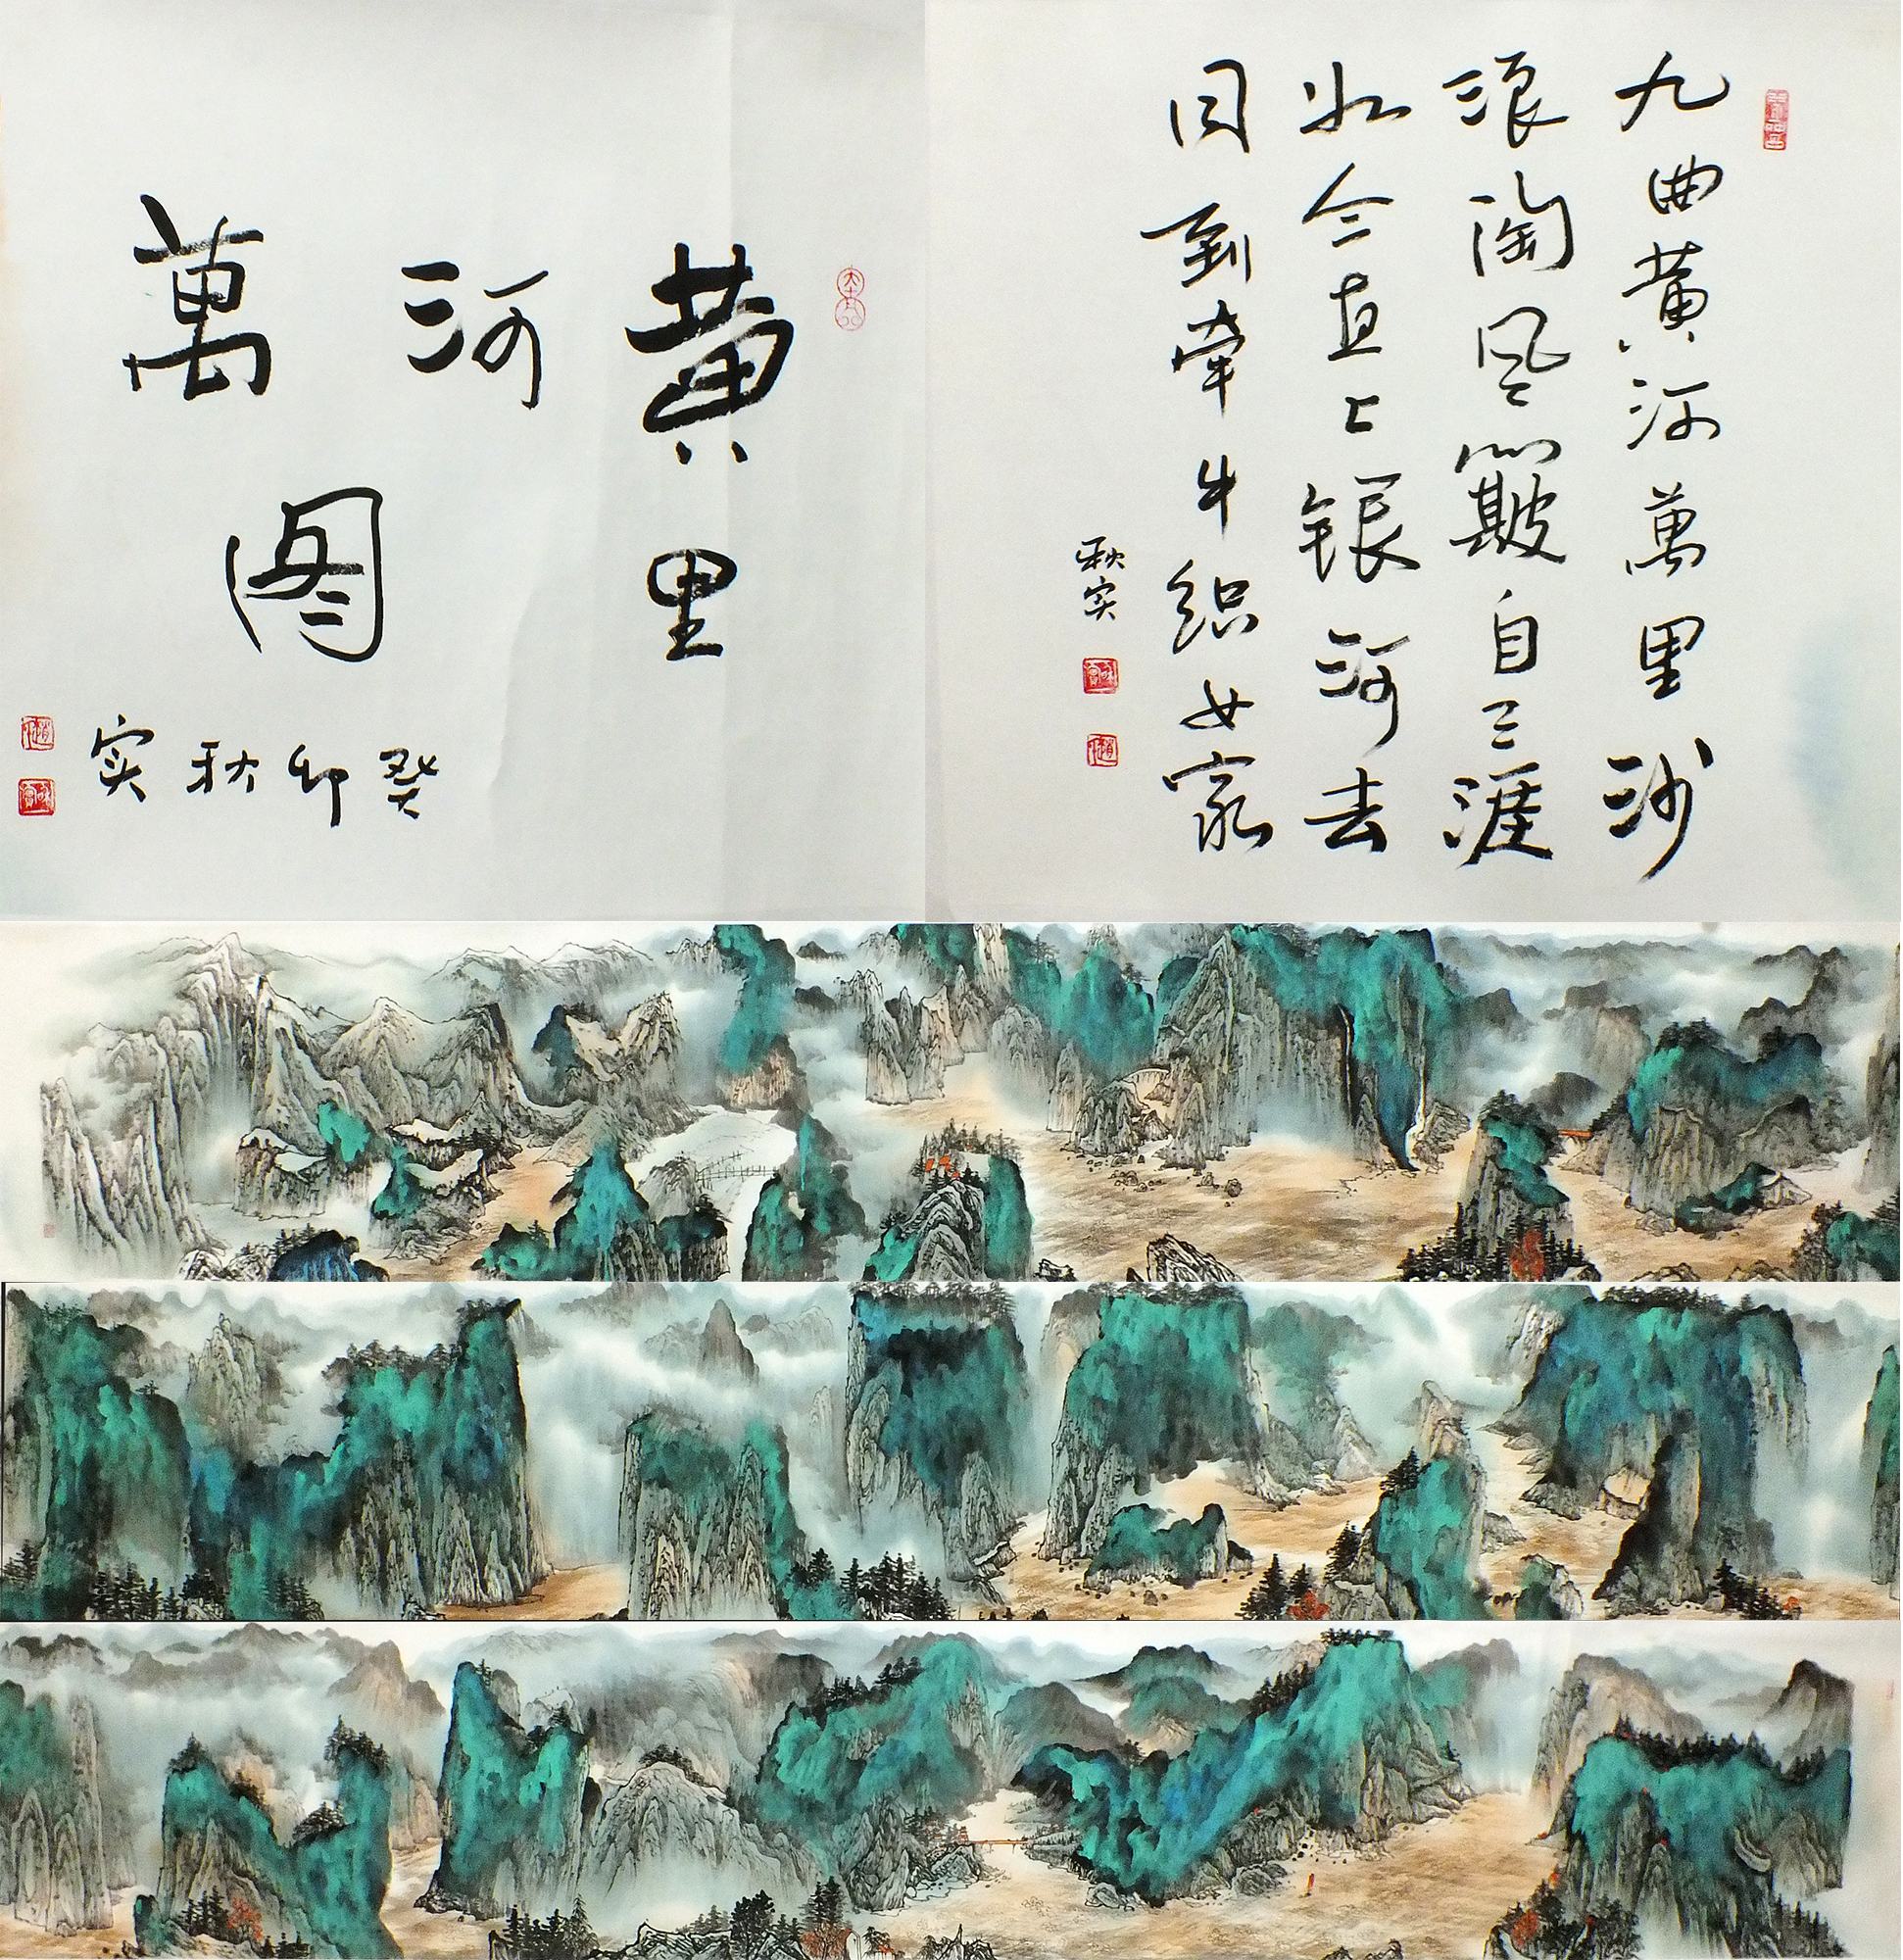 黄河萬
里图
癸卯秋实
九曲黄河萬里沙
浪淘风簸自天涯
如今直上银河去
同到牵牛织女家
秋实